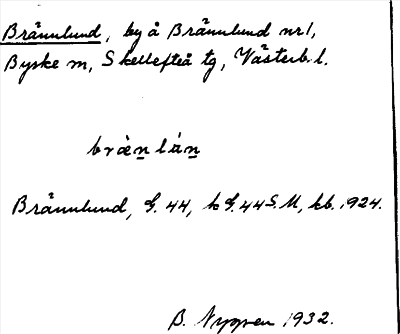 Brännlund, by å Brännlund nr 1,
Byske sn, Skellefteå tg, Västerb. l.
bræ̀n̲lán̲
Brännlund, G. 44, k G. 44 S. M, kb. 1924.
B. Nygren 1932.